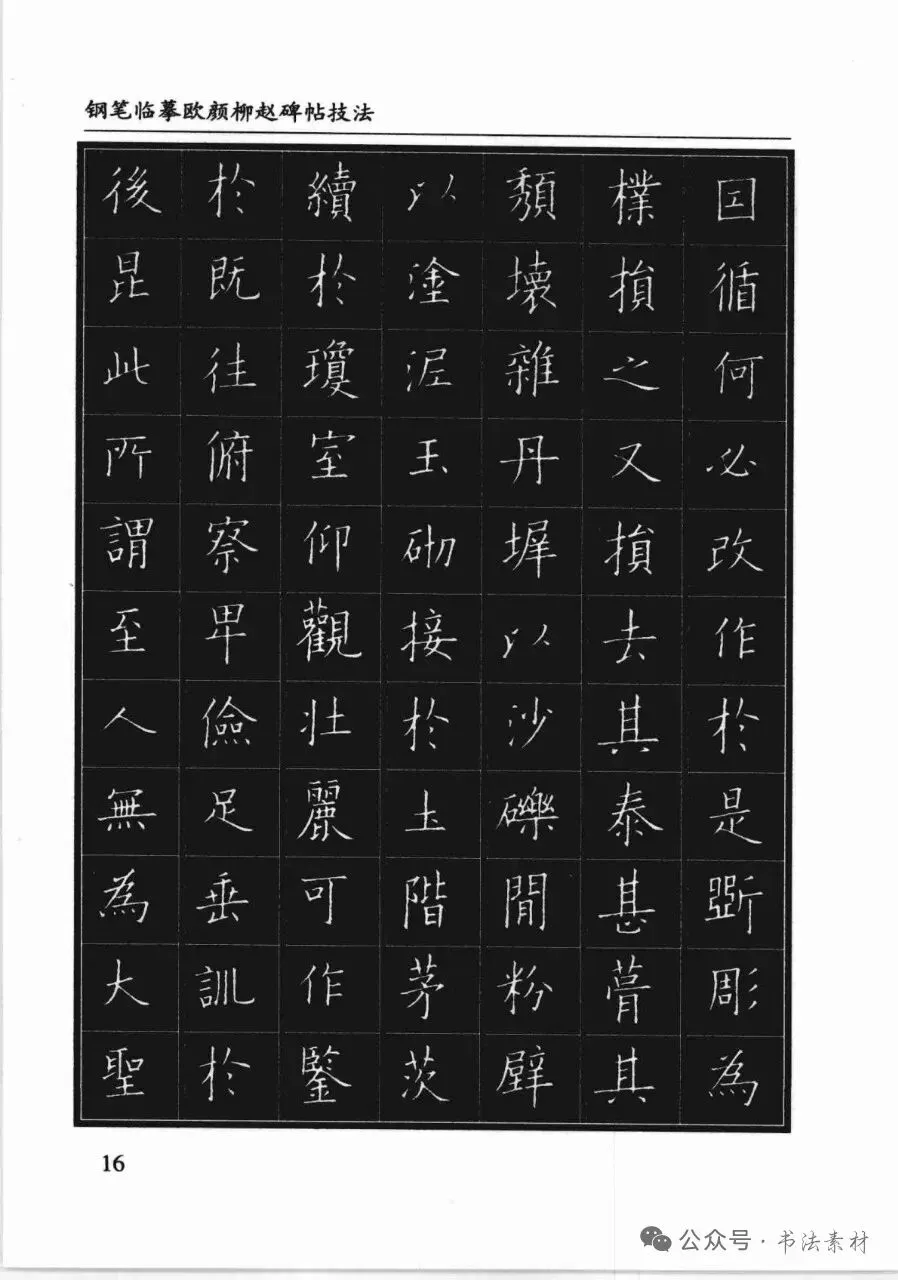 钢笔临摹欧颜柳赵碑帖技法
因循何必改作於是斲彫為
樸損之又損去其泰甚葺其
頹壞雜丹墀以沙礫間粉壁
以塗泥玉砌接於土階茅茨
續於瓊室仰觀壯麗可作鑒
於既往俯察卑儉足垂訓於
後昆此所謂至人無為大聖
16
公众号·书法素材